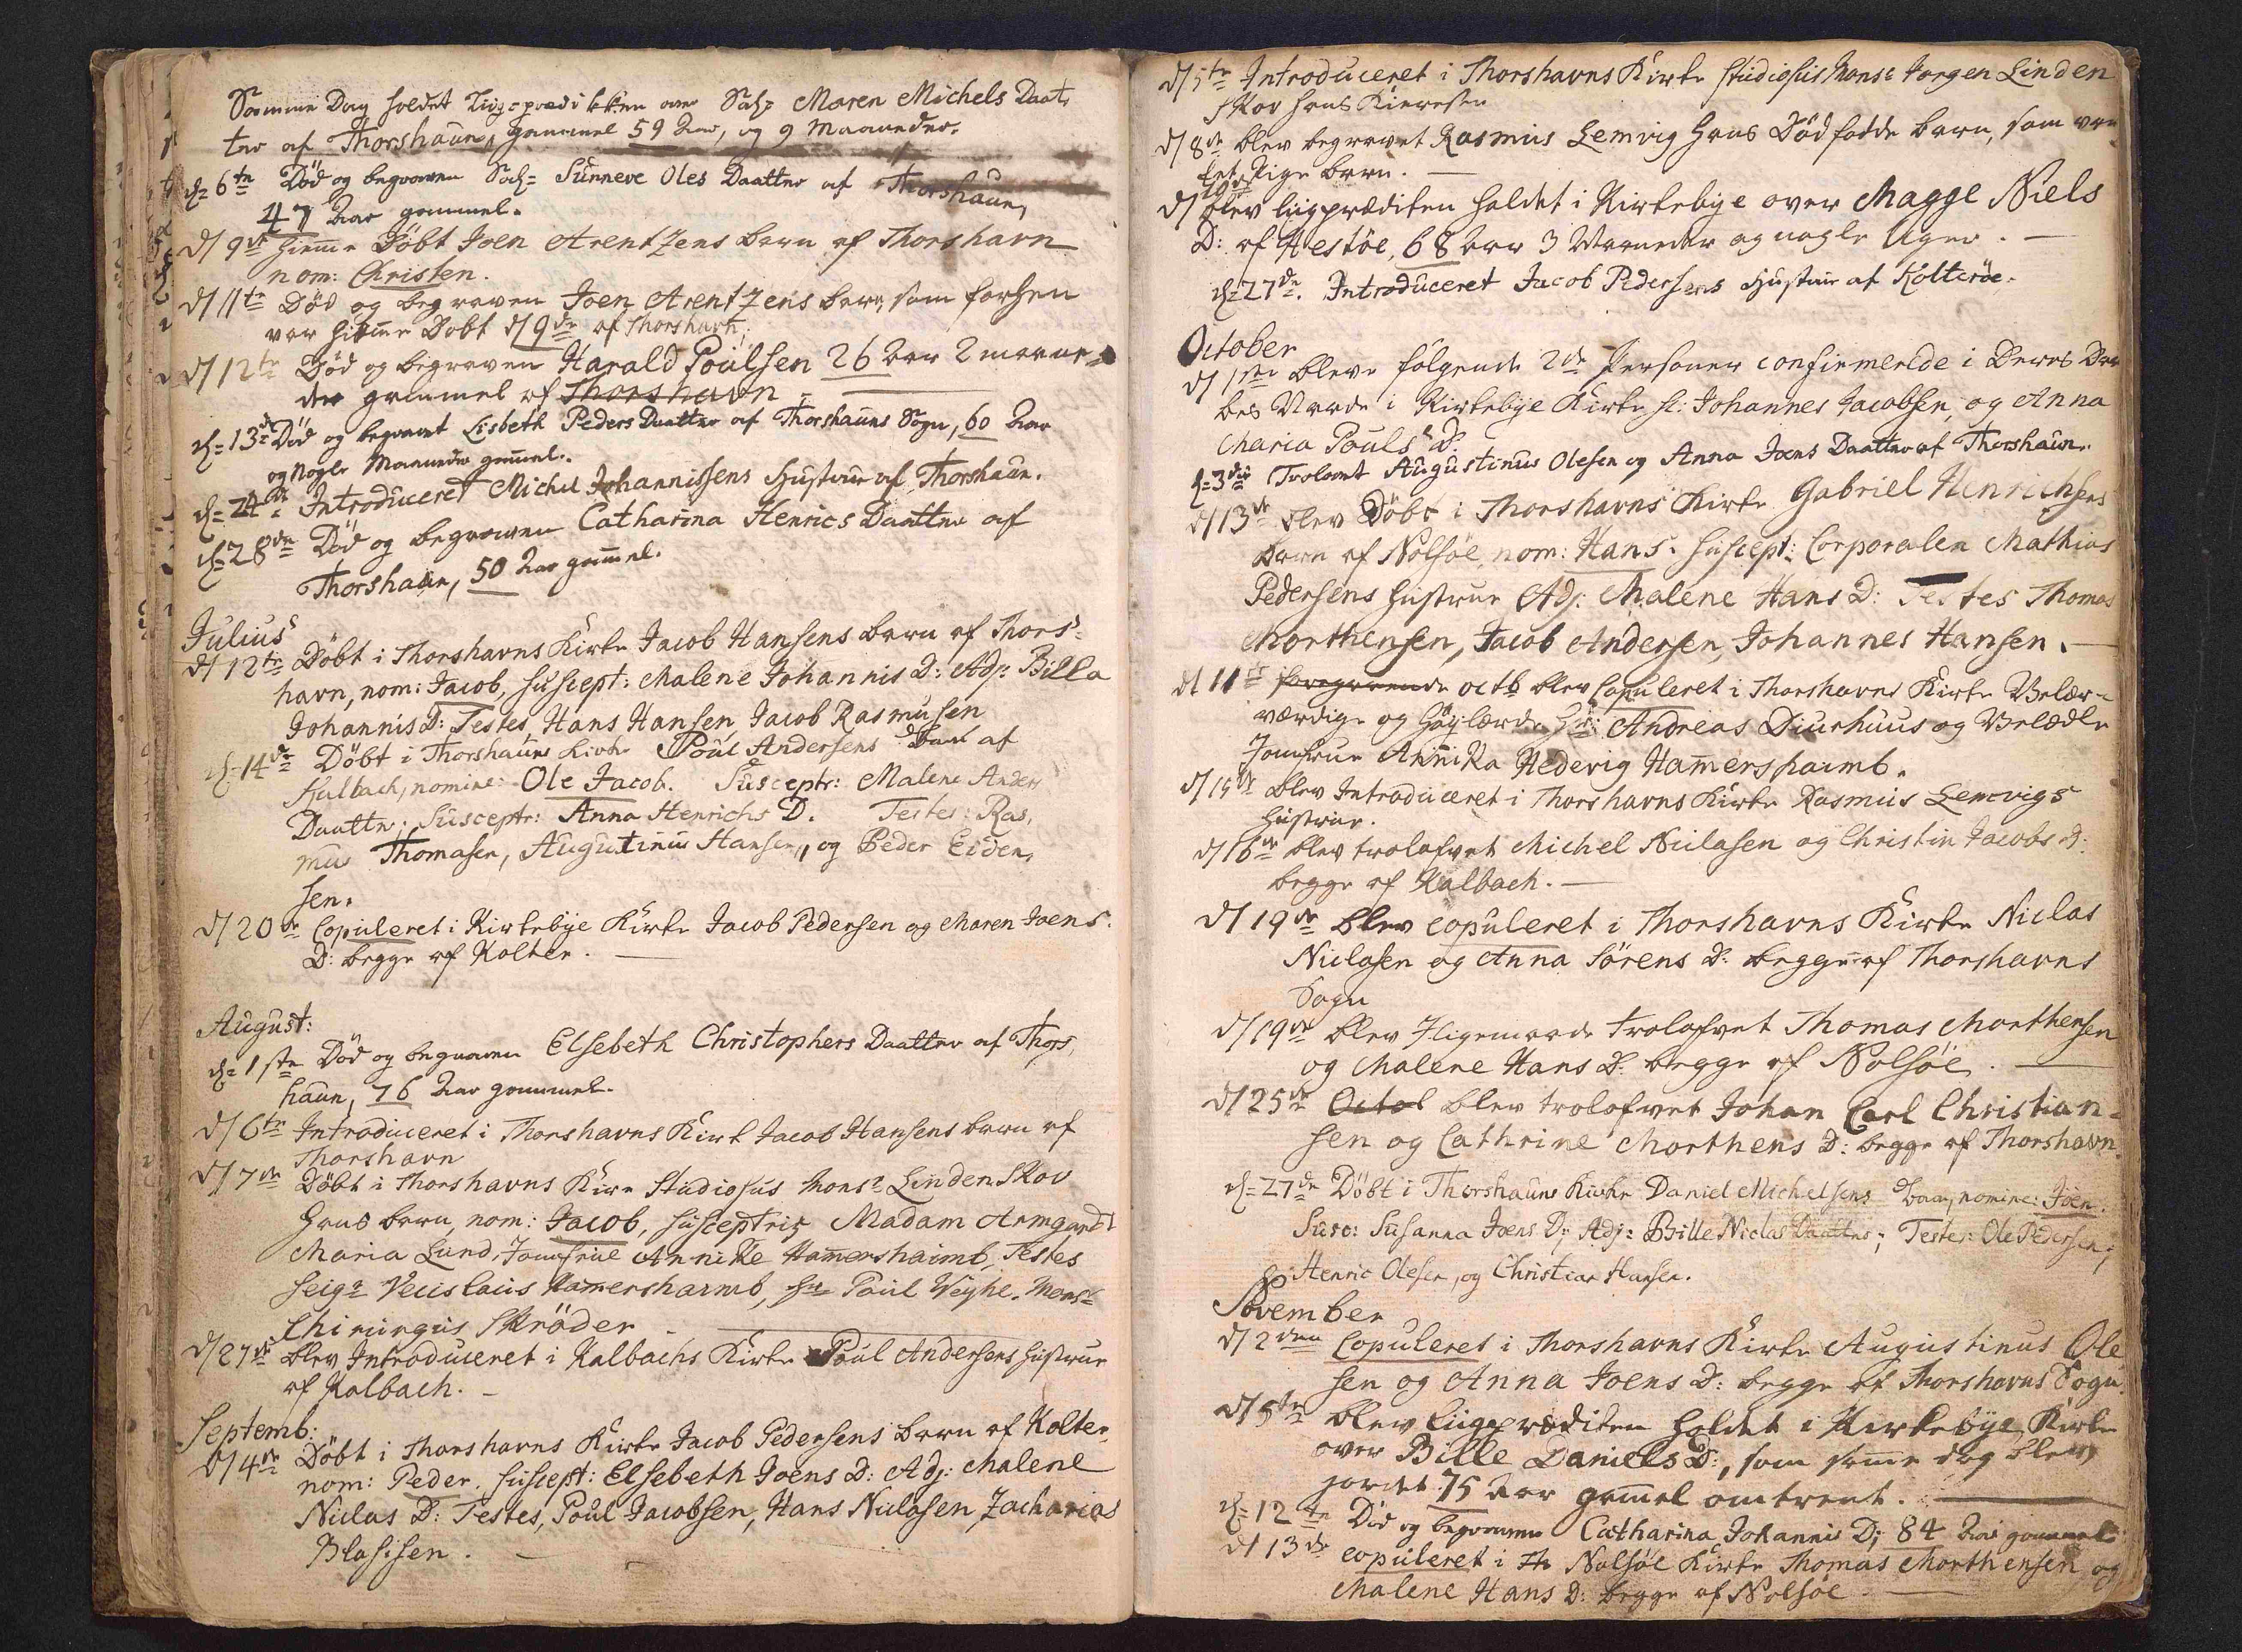 Samme Dag holdet Liig-prædikken over Sal: Maren Michels Daat,
ter af Thorshaun, gammel 59 Aar, og 9 Maaneder.
d: 6te Död og begraven Sal: Sunneve Oles Daatter af Thorshaun,
47 Aar gammel.
d/ 9de hiemme Döbt Joen Arentzens barn af Thorshavn
nom: Christen.
d/ 11te Död og begraven Joen Arentzens barn, som forhen
var hiemme Döbt d/ 9de af Thorshavn,
d/ 12te Död og begraven Harald Poulsen 26 Aar 2 maane=
der gammel af Thorshavn
d: 13de Död og begravet Lisbeth Peders Daatter af Thorshauns Sogn, 60 Aar
og Nogle Maaneder gammel.
d: 24de Introduceret Michel Johannissens Hustrue af Thorshaun.
d: 28de Död og begraven Catharina Henrics Daatter af
Thorshaun, 50 Aar gammel.
Julius
d/ 12te Döbt i Thorshavns Kirke Jacob Hansens barn af Thors=
havn, nom: Jacob, suscept: Malene Johannis D: Adj: Billa
Johannis D: Testes, Hans Hansen, Jacob Rasmusen
d: 14de Döbt i Thorshauns Kirke Poul Andersens Barn af
Kulbach, nomine: Ole Jacob. Susceptr: Malene Anders
Daatter. Susceptr: Anna Henrichs D. Testes: Ras,
mus Thomasen, Augustinus Hansen, og Peder Eiden,
sen.
d/ 20de Copuleret i Kirkebÿe Kirke Jacob Pedersen og Maren Joens
D: begge af Kolter.
August:
d: 1ste Död og begraven Elsebeth Christophers Daatter af Thors,
haun, 76 Aar gammel.
d/ 6te Introduceret i Thorshavns Kirke Jacob Hansens barn af
Thorshavn
d/ 7de Döbt i Thorshavns Kirke Studiosus Monsr LindenSkov
Hans barn, nom: Jacob, susceptrix Madam Armgardt
Maria Lund, Jomfrue Annike Hamershaimb, Testes
seigr Veiislaus Hamershaimb, Hr Poul Weyhe. Monsr
Chirurgus Skröder
d/ 27de blev Introduceret i Kalbachs Kirke Poul Andersens hustrue
af Kalbach.
Septemb:
d/ 4de Döbt i Thorshavns Kirke Jacob Pedersens barn af Kolter,
nom: Peder, suscept: Elsebeth Joens D: Adj: Malene
Niclas D: Testes, Poul Jacobsen, Hans Niclasen, Zacharias
Blasisen.
d/ 5te Introduceret i Thorshavns Kirke studiosus Monsr Jorgen Linden
skov hans Kiereste
d/ 8de blev begravet Rasmus Lemvig Hans Dödfødde barn, som var
Pige barn.
d/ 10de blev liigprædiken holdet i Kirkebÿe over Magge Niels
D: af Hestöe, 68 Aar 3 Maaneder og nogle Uger.
d: 27de. Introduceret Jacob Pedersens Hustrue af Kolteröe.
October
d/ 1ste bleve fölgende 2de Personer confirmerede i Deres Daa
bes Naade i Kirkebÿe Kirke sc: Johannes Jacobsen, og Anna
Maria Pouls D:
d: 3die Trolovet Augustinus Olesen og Anna Joens Daatter af Thorshaun.
d/ 13de blev Döbt i Thorshavns Kirke Gabriel Henrichsens
barn af Nolsöe, nom: Hans. suscept: Corporalen Mathias
Pedersens hustrue Adj: Malene Hans D: Testes Thomas
Morthensen, Jacob Andersen, Johannes Hansen.
d/ 11te foregaaende octb blev Copuleret i Thorshavns Kirke Velær-
værdige og Höÿlærde Hr: Andreas Diurhuus og Velædle
Jomfrue Annika Hedevig Hamershaimb.
d/ 15de blev Introduceret i Thorshavns Kirke Rasmus Lemvigs
Hustrue.
d/ 16de blev trolofvet Michel Niclasen og Christin Jacobs D:
begge af Kalbach.
d/ 19de blev copuleret i Thorshavns Kirke Niclas
Niclasen og Anna Sörens D: begge af Thorshavns
Sogn
d/ 19de blev Iligemaade trolofvet Thomas Morthensen
og Malene Hans D: begge af Nolsöe.
d/ 25de Octob blev trolofvet Johan Carl Christian-
sen og Cathrine Morthens D: begge af Thorshavn.
d: 27de Döbt i Thorshauns Kirke Daniel Michelsens Barn, nomine: Joen.
Susc: Susanna Joens D; Adj: Bille Niclas Daatter; Testes: Ole Pedersen,
Henric Olesen, og Christian Hansen.
November
d/ 2den Copuleret i Thorshavns Kirke Augustinus Ole
sen og Anna Joens D: begge af Thorshavns Sogn.
d/ 5te blev liigprædiken holdet i Kirkebÿe Kirke
over Bille Daniels D:, som samme dag blev
jordet 75 Aar gamel omtrent.
d: 12te Död og begraven Catharina Johannis D; 84 Aar gammel
d/ 13de copuleret i Th Nolsöe Kirke Thomas Morthensen og
Malene Hans D: begge af Nolsöe